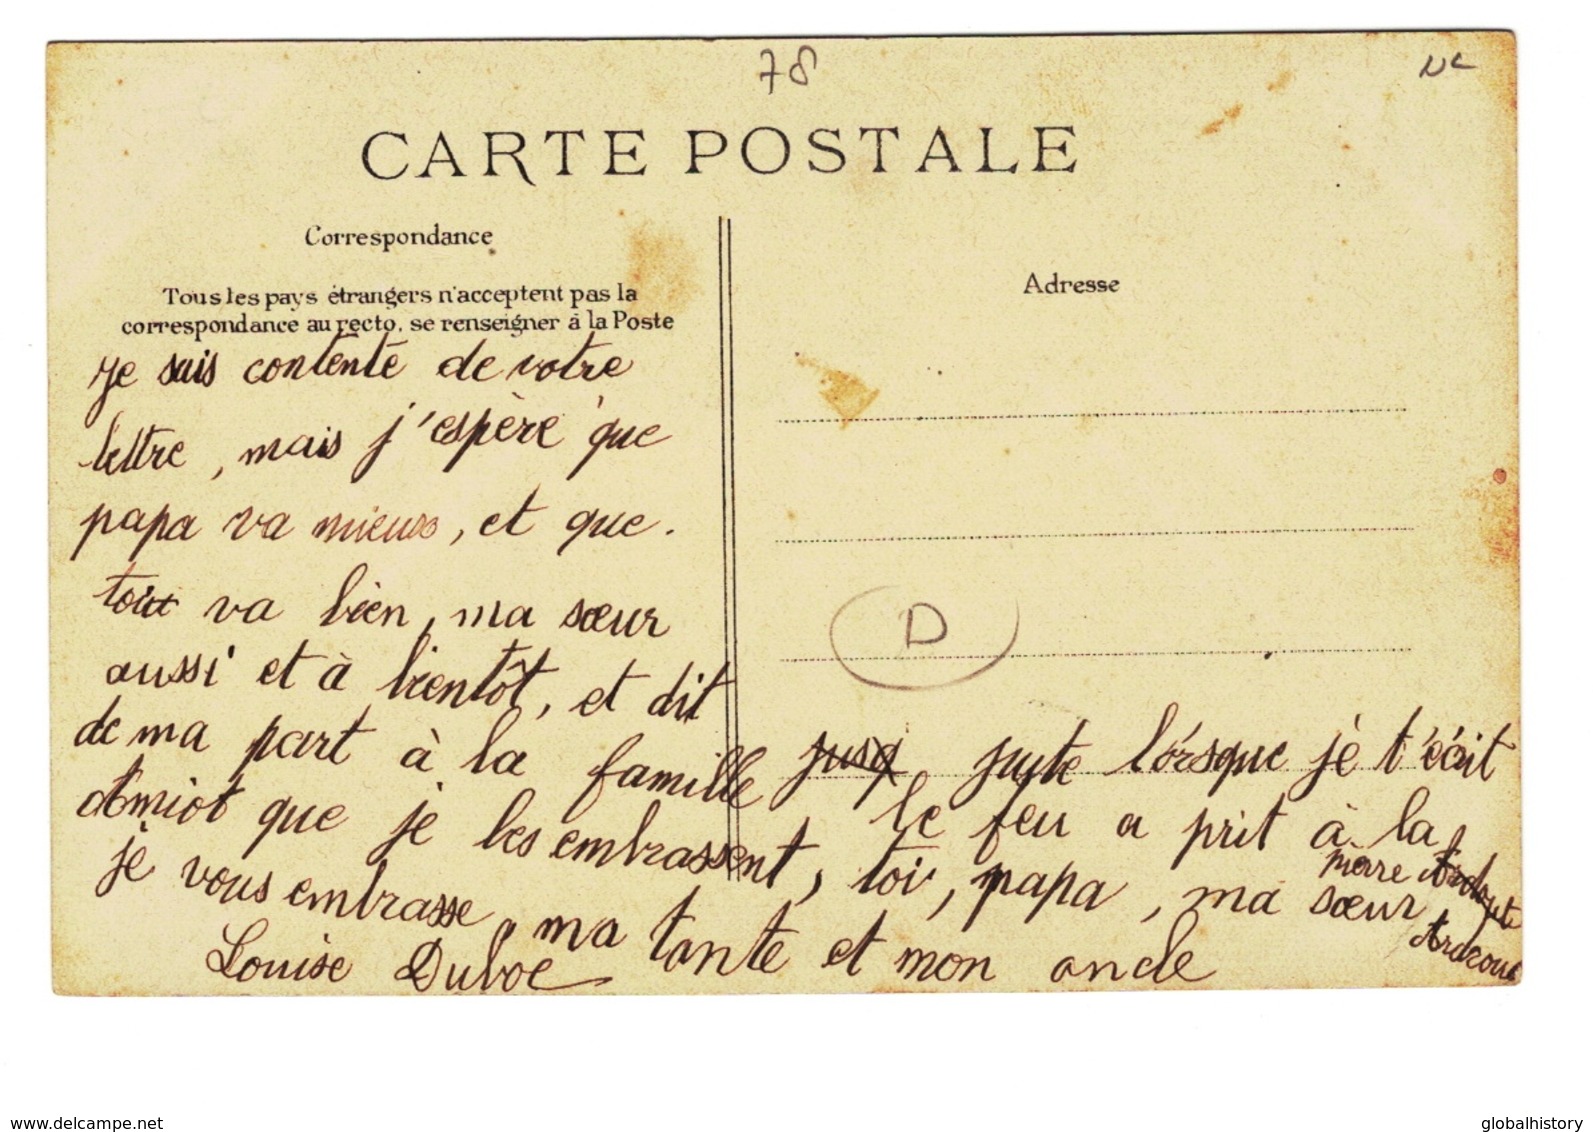 78
CARTE POSTALE
Correspondance
Tous les pays étrangers n'acceptent pas la
correspondance au recto, se renseigner à la Poste
Adresse
Je suis contente de votre
lettre, mais j'espère que
papa va mieux, et que.
tout va bien, ma sœur
aussi et à bientôt, et dit
de ma part à la famille
Amiot que je les embrassent,
je vous embrasse, toi, papa, ma sœur
ma tante et mon oncle
Louise Duboc
D
juste lorsque je t'écrit
le feu a prit à la
pierre
www.delcampe.net
globalhistory